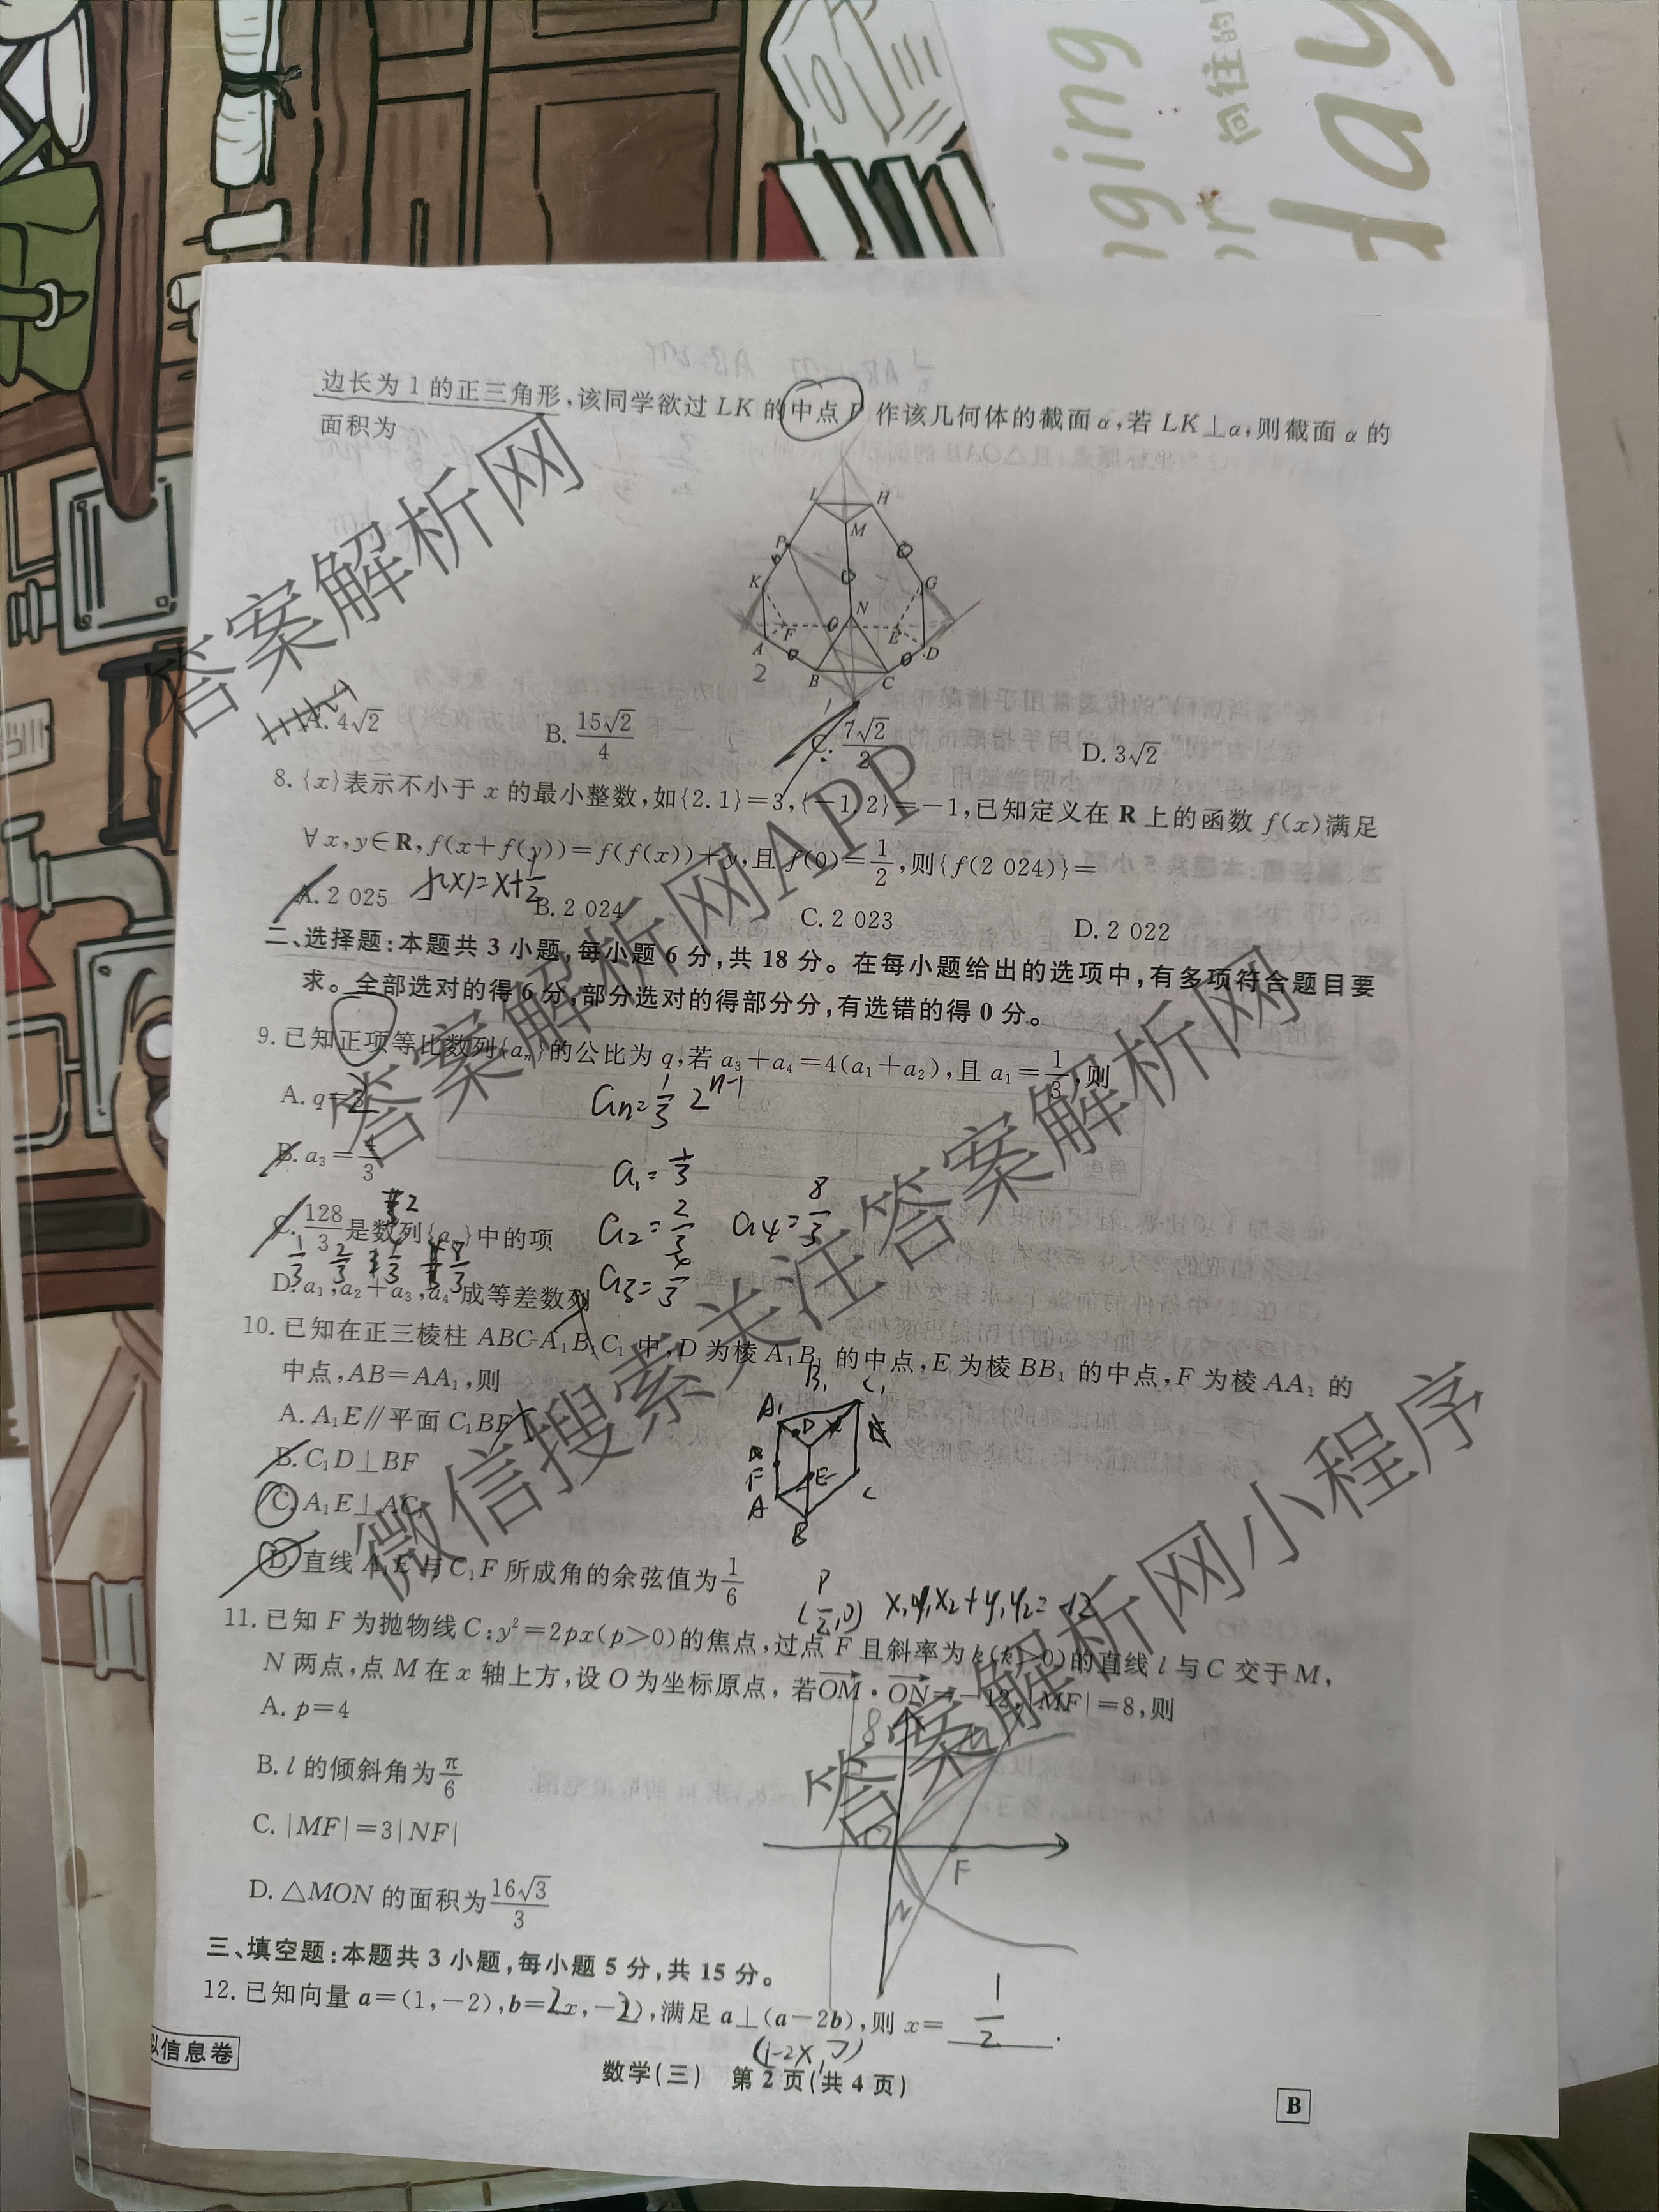 ging
or
向往的
day
边长为1的正三角形,该同学欲过LK的中点P作该几何体的截面α,若LK⊥α,则截面α的
面积为
L H
M
P
K G
N
F E
A D
B C
2
A. 4√2 B. 15√2/4 C. 7√2/2 D. 3√2
8. {x}表示不小于x的最小整数,如{2.1}=3,{-1.2}=-1,已知定义在R上的函数f(x)满足
∀x,y∈R,f(x+f(y))=f(f(x))+y,且f(0)=1/2,则{f(2 024)}=
f(x)=x+1/2
A. 2 025 B. 2 024 C. 2 023 D. 2 022
二、选择题:本题共3小题,每小题6分,共18分。在每小题给出的选项中,有多项符合题目要
求。全部选对的得6分,部分选对的得部分分,有选错的得0分。
9. 已知正项等比数列{aₙ}的公比为q,若a₃+a₄=4(a₁+a₂),且a₁=1/3,则
A. q=3
aₙ=1/3 2ⁿ⁻¹
B. a₃=4/3
a₁=1/3
C. 128/3是数列{aₙ}中的项
a₂=2/3 a₄=8/3
1/3 2/3 4/3 8/3
D. a₁,a₂+a₃,a₄成等差数列
a₃=4/3
10. 已知在正三棱柱ABC-A₁B₁C₁中,D为棱A₁B₁的中点,E为棱BB₁的中点,F为棱AA₁的
中点,AB=AA₁,则
A. A₁E∥平面C₁BF
B. C₁D⊥BF
C. A₁E⊥AC₁
D. 直线A₁E与C₁F所成角的余弦值为1/6
A₁ B₁ C₁
D
F E
A B C
(P/2,0) x₁x₂+y₁y₂=-12
11. 已知F为抛物线C:y²=2px(p>0)的焦点,过点F且斜率为k(k>0)的直线l与C交于M,
N两点,点M在x轴上方,设O为坐标原点,若OM·ON=-12,|MF|=8,则
A. p=4
8
B. l的倾斜角为π/6
C. |MF|=3|NF|
F
N
D. △MON的面积为16√3/3
三、填空题:本题共3小题,每小题5分,共15分。
12. 已知向量a=(1,-2),b=(x,-2),满足a⊥(a-2b),则x=1/2.
(1-2x,2)
拟信息卷
数学(三) 第2页(共4页)
B
答案解析网
答案解析网APP
微信搜索关注答案解析网
答案解析网小程序